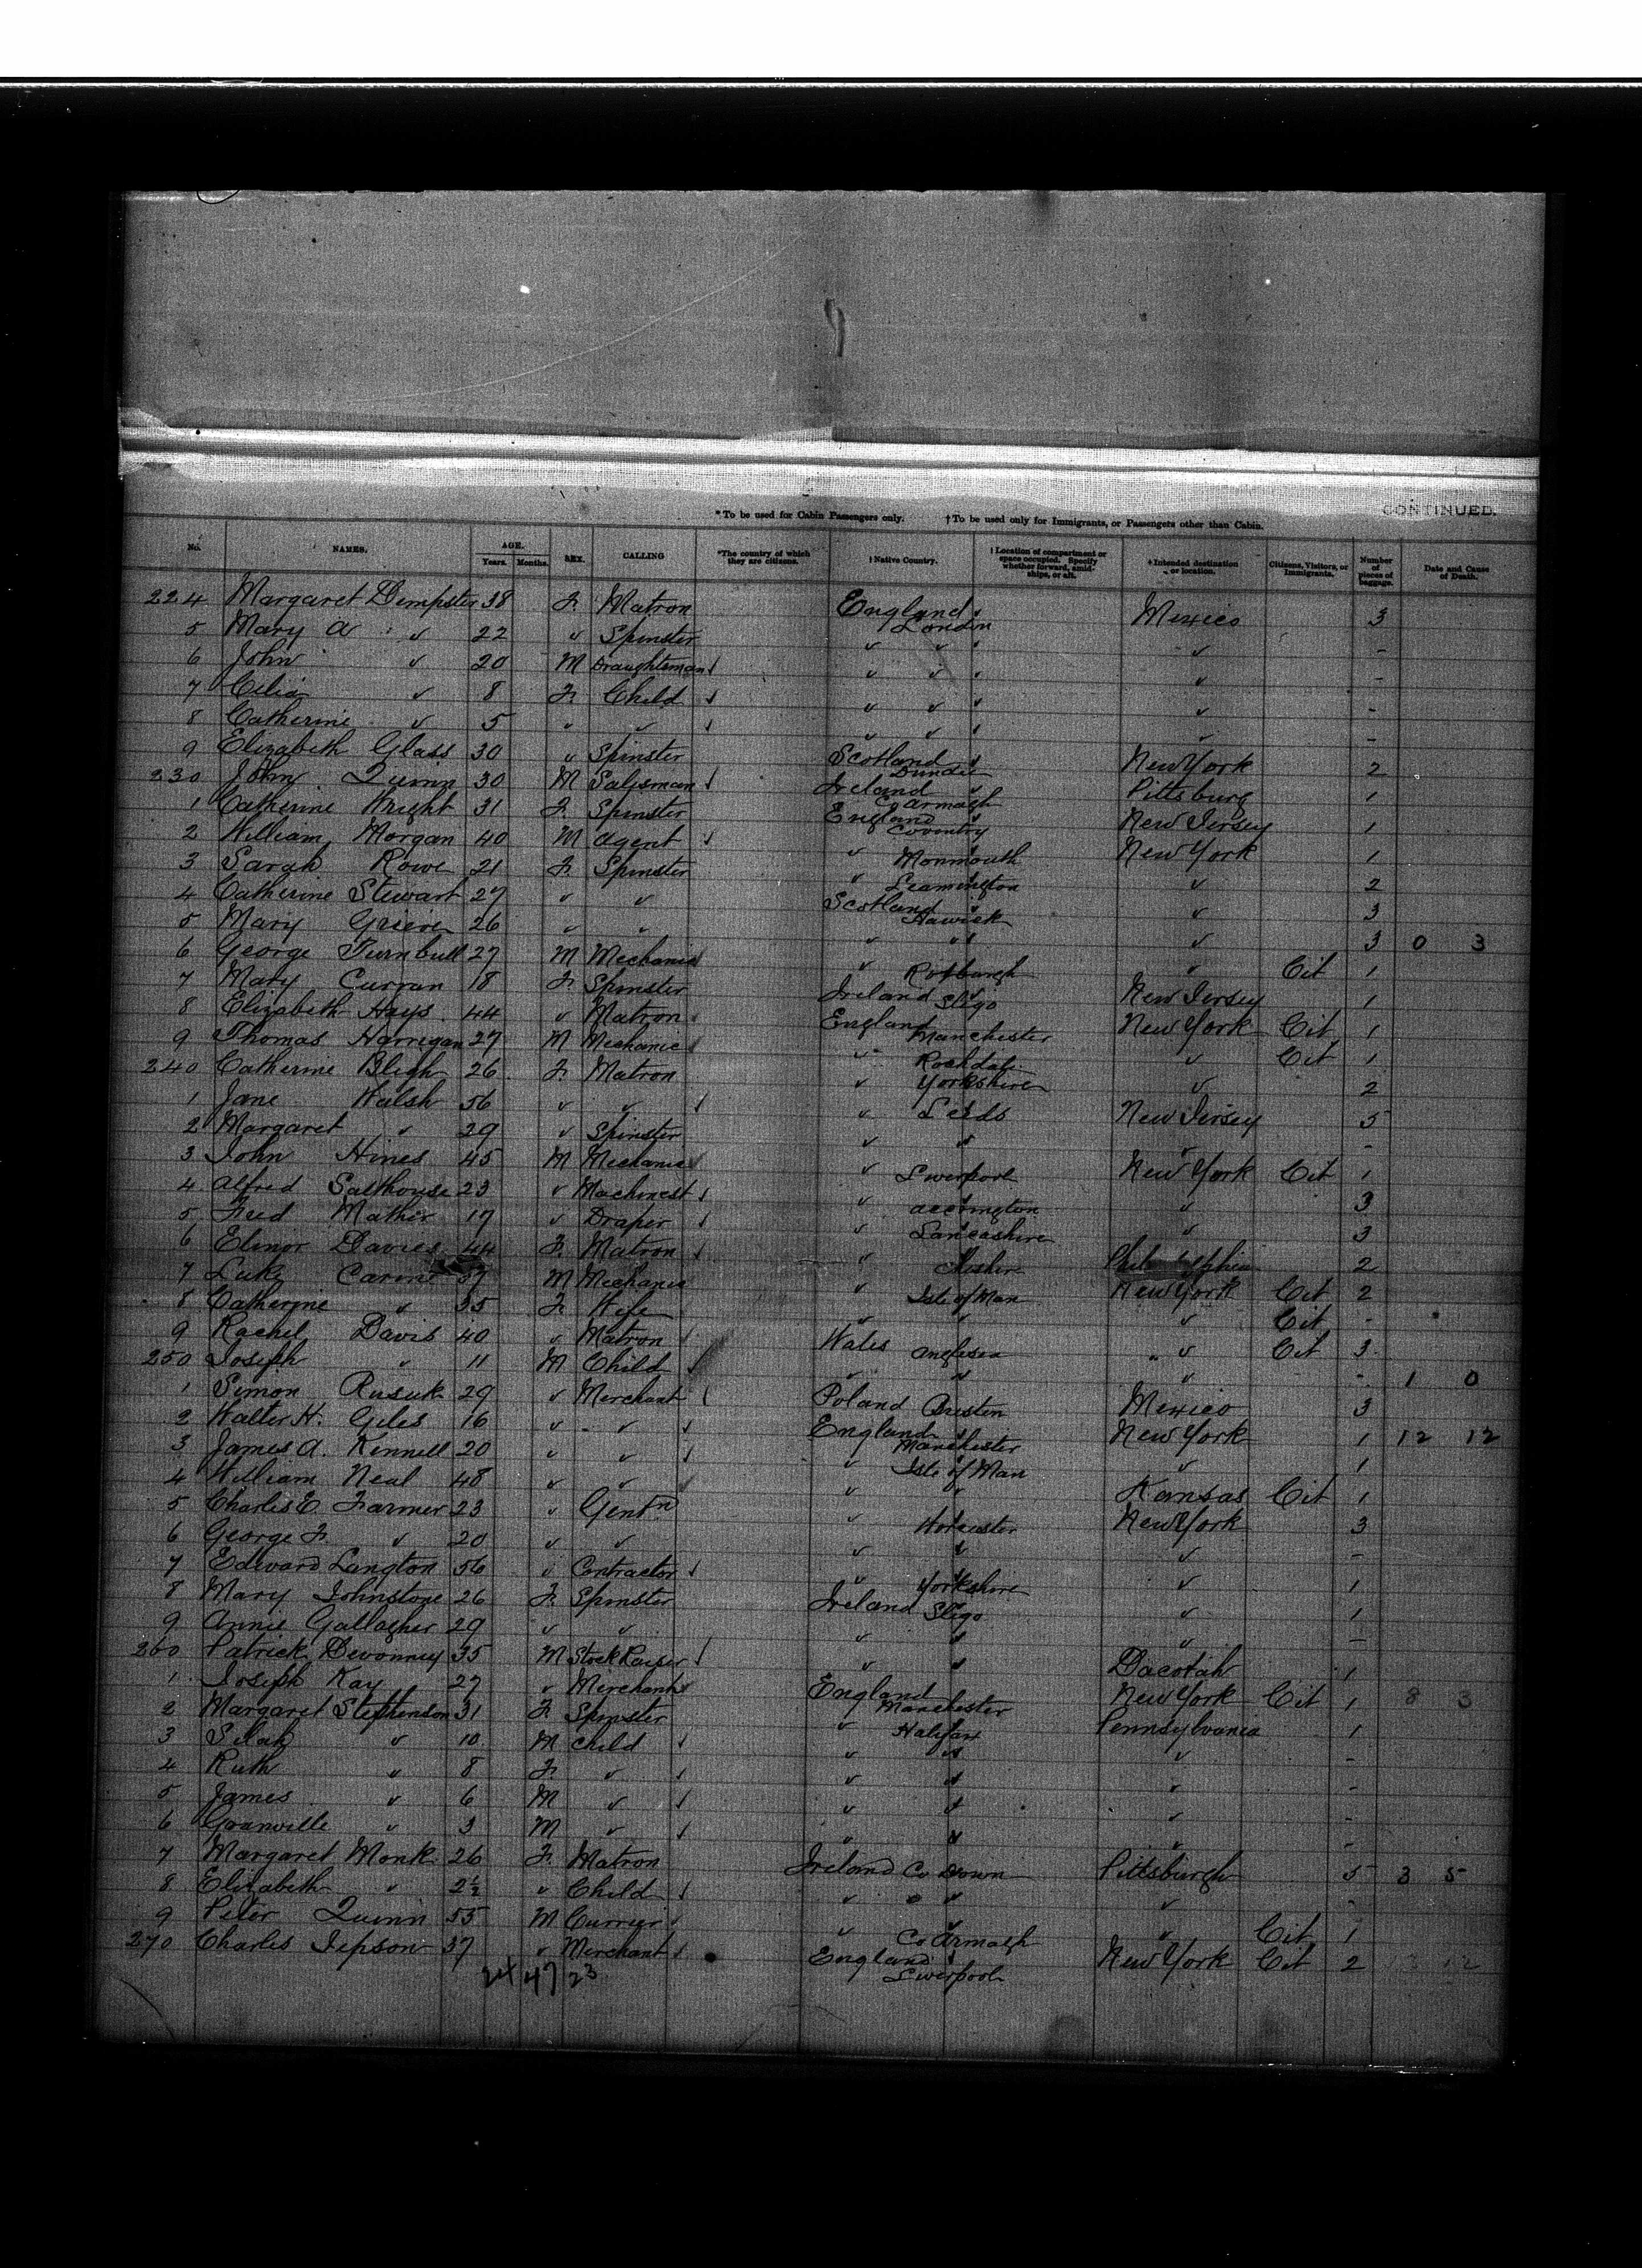 CONTINUED.
*To be used for Cabin Passengers only. †To be used only for Immigrants, or Passengers other than Cabin.
No. NAMES. AGE. Years. Months. SEX. CALLING *The country of which they are citizens. †Native Country. †Location of compartment or space occupied. Specify whether forward, amidships, or aft. ‡Intended destination or location. Citizens, Visitors, or Immigrants. Number of pieces of baggage. Date and Cause of Death.
224 Margaret Dempster 38 F. Matron England London Mexico 3
5 Mary A " 22 " Spinster " " " -
6 John " 20 M Draughtsman " " " -
7 Celia " 8 F. Child " " " -
8 Catherine " 5 " " " " " -
9 Elizabeth Glass 30 " Spinster Scotland Dundee New York 2
230 John Quinn 30 M Salesman Ireland Co Armagh Pittsburg 1
1 Catherine Wright 31 F. Spinster England Coventry New Jersey 1
2 William Morgan 40 M Agent " Monmouth New York 1
3 Sarah Rowe 21 F. Spinster " Leamington " 2
4 Catherine Stewart 27 " " Scotland Hawick " 3
5 Mary Grieve 26 " " " " " 3 0 3
6 George Turnbull 27 M Mechanic " Roxburgh " Cit 1
7 Mary Curran 18 F. Spinster Ireland Sligo New Jersey 1
8 Elizabeth Hays 44 " Matron England Manchester New York Cit 1
9 Thomas Harrigan 27 M Mechanic " Rochdale " Cit 1
240 Catherine Bligh 26 F. Matron " Yorkshire " 2
1 Jane Walsh 56 " " " Leeds New Jersey 5
2 Margaret " 29 " Spinster " " " -
3 John Hines 45 M Mechanic " Liverpool New York Cit 1
4 Alfred Salthouse 23 " Machinest " Accrington " 3
5 Fred Mather 17 " Draper " Lancashire " 3
6 Elinor Davies 44 F. Matron " Cheshire 2
7 Luke 37 M Mechanic " Isle of Man New York Cit 2
8 Catherine " 35 F. Wife " " " Cit -
9 Rachel Davis 40 " Matron Wales Anglesea " " Cit 3
250 Joseph " 11 M Child " " " - 1 0
1 Simon Rusuk 29 " Merchant Poland Mexico 3
2 Walter H. Giles 16 " " England Manchester New York 1 12 12
3 James A. Kennell 20 " " " Isle of Man " 1
4 William Neal 48 " " " " Kansas Cit 1
5 Charles E. Farmer 23 " Gentn " Worcester New York 3
6 George F. " 20 " " " " " -
7 Edward Langton 56 " Contractor " Yorkshire " 1
8 Mary Johnstone 26 F. Spinster Ireland Sligo " 1
9 Annie Gallagher 29 " " " " " -
260 Patrick Devonney 35 M Stock Raiser " " Dacotah 1
1 Joseph Kay 27 " Merchant England Manchester New York Cit 1 8 3
2 Margaret Stephenson 31 F. Spinster " Halifax Pennsylvania 1
3 Silah " 10 M Child " " " -
4 Ruth " 8 F. " " " " -
5 James " 6 M " " " " -
6 Granville " 3 M " " " " -
7 Margaret Monk 26 F. Matron Ireland Co Down Pittsburgh 5 3 5
8 Elizabeth " 2½ " Child " " " -
9 Peter Quinn 55 M Currier " Co Armagh " Cit 1
270 Charles Jepson 37 " Merchant England Liverpool New York Cit 2 12
24 47 23